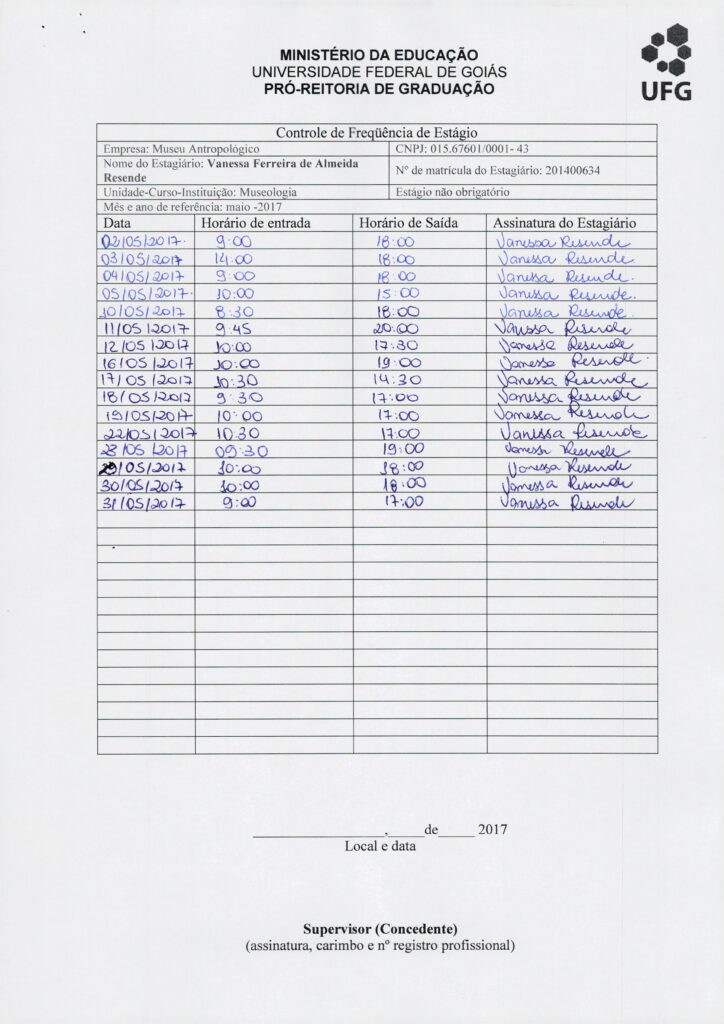 MINISTÉRIO DA EDUCAÇÃO
UNIVERSIDADE FEDERAL DE GOIÁS
PRÓ-REITORIA DE GRADUAÇÃO
UFG
Controle de Freqüência de Estágio
Empresa: Museu Antropológico CNPJ: 015.67601/0001- 43
Nome do Estagiário: Vanessa Ferreira de Almeida
Resende
Nº de matrícula do Estagiário: 201400634
Unidade-Curso-Instituição: Museologia Estágio não obrigatório
Mês e ano de referência: maio -2017
Data Horário de entrada Horário de Saída Assinatura do Estagiário
02/05/2017 9:00 18:00 Vanessa Resende
03/05/2017 14:00 18:00 Vanessa Resende.
04/05/2017 9:00 18:00 Vanessa Resende.
05/05/2017 10:00 15:00 Vanessa Resende.
10/05/2017 8:30 18:00 Vanessa Resende
11/05/2017 9:45 20:00 Vanessa Resende
12/05/2017 10:00 17:30 Vanessa Resende
16/05/2017 10:00 19:00 Vanessa Resende.
17/05/2017 10:30 14:30 Vanessa Resende
18/05/2017 9:30 17:00 Vanessa Resende
19/05/2017 10:00 17:00 Vanessa Resende
22/05/2017 10:30 17:00 Vanessa Resende
23/05/2017 09:30 19:00 Vanessa Resende
29/05/2017 10:00 18:00 Vanessa Resende
30/05/2017 10:00 18:00 Vanessa Resende
31/05/2017 9:00 17:00 Vanessa Resende
___________________,_____de_____ 2017
Local e data
Supervisor (Concedente)
(assinatura, carimbo e nº registro profissional)